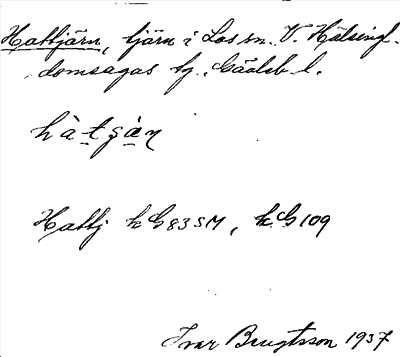 Hattjärn, tjärn i Los sn. V. Hälsingl.
domsagas tg. Gävleb. l.
hàtṣàṇ
Hattj k G 83 SM, k. G 109
Ivar Bengtsson 1937